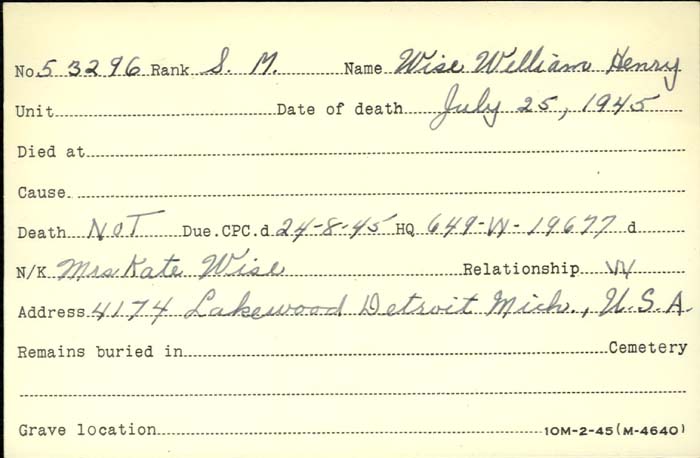 No. 53296 Rank S. M. Name Wise William Henry
Unit Date of death July 25, 1945
Died at
Cause.
Death NOT Due.CPC.d 24-8-45 HQ 649-W-19677 d
N/K Mrs Kate Wise Relationship W
Address 4174 Lakewood Detroit Mich., U.S.A.
Remains buried in Cemetery
Grave location 10M-2-45(M-4640)